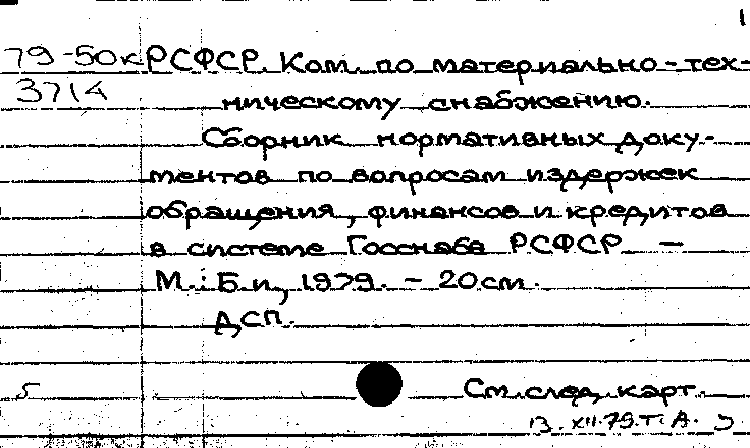 1
79-50к РСФСР. Ком. по материально-тех-
3714 ническому снабжению.
Сборник нормативных доку-
ментов по вопросам издержек
обращения, финансов и кредитов
в системе Госснаба РСФСР. —
М.: Б.и, 1979. - 20 см.
ДСП.
5 См. след. карт.
13. XII.79. Т. А.